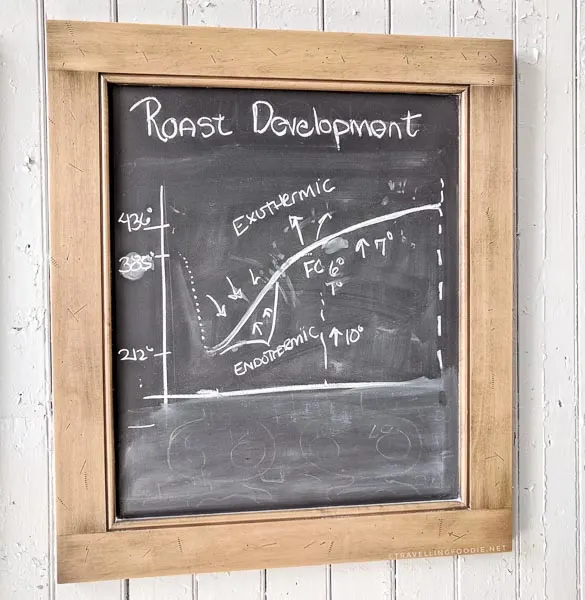 Roast Development
Exothermic
436°
385°
FC 6°
7°
↑ 7°
Endothermic
↑ 10°
212°
©TRAVELLINGFOODIE.NET